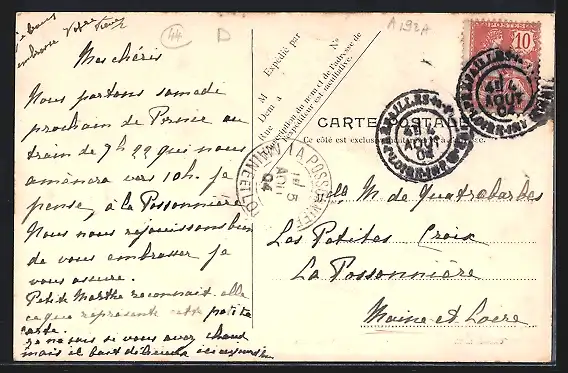 Mes chéris
Nous partons samedi
prochain de Pornic au
train de 9h22 qui nous
amènera vers 10h. je
pense, à la Possonnière
Nous nous réjouissons bien
de vous embrasser je
vous assure.
Petite Marthe reconnait elle
ce que représente cette petite
carte.
je ne sais si vous avez chaud
mais il fait délicieux ici aujourd'hui
je vous
embrasse
44
D
A 192A
Expédié par
M
Dem à
Rue
N°
L'indication du nom et de l'adresse de
l'Expéditeur est facultative.
CARTE POSTALE
Ce côté est exclusivement
10
4
AOUT
04
4
AOUT
04
LA POSSONNIERE
5
AOU
04
MAINE ET LOIRE
M. de Quatrebarbes
Les Petites Croix
La Possonnière
Maine et Loire